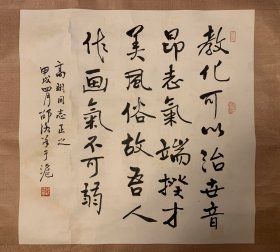 教化可以治世音
昂志氣端揆才
美風俗故吾人
作画氣不可弱
高翔同志正之
甲戌四月邵洛羊于滬